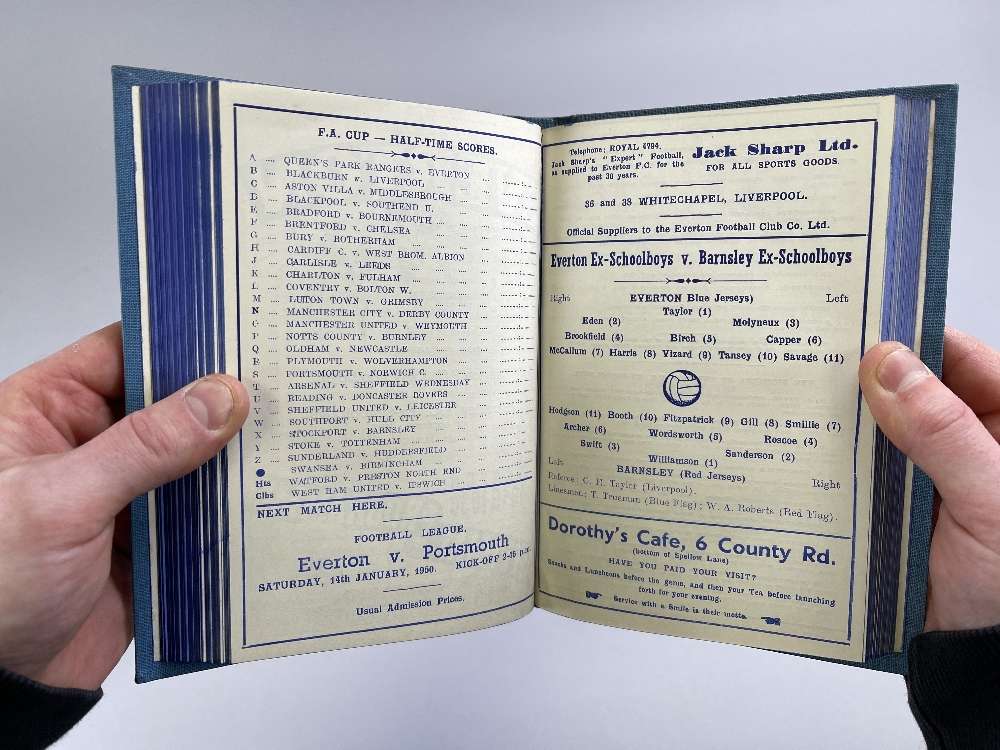 F.A. CUP — HALF-TIME SCORES.
A ... QUEEN'S PARK RANGERS v. EVERTON ...
B ... BLACKBURN v. LIVERPOOL ...
C ... ASTON VILLA v. MIDDLESBROUGH ...
D ... BLACKPOOL v. SOUTHEND U. ...
E ... BRADFORD v. BOURNEMOUTH ...
F ... BRENTFORD v. CHELSEA ...
G ... BURY v. ROTHERHAM ...
H ... CARDIFF C. v. WEST BROM. ALBION ...
J ... CARLISLE v. LEEDS ...
K ... CHARLTON v. FULHAM ...
L ... COVENTRY v. BOLTON W. ...
M ... LUTON TOWN v. GRIMSBY ...
N ... MANCHESTER CITY v. DERBY COUNTY ...
O ... MANCHESTER UNITED v. WEYMOUTH ...
P ... NOTTS COUNTY v. BURNLEY ...
Q ... OLDHAM v. NEWCASTLE ...
R ... PLYMOUTH v. WOLVERHAMPTON ...
S ... PORTSMOUTH v. NORWICH C. ...
T ... ARSENAL v. SHEFFIELD WEDNESDAY ...
U ... READING v. DONCASTER ROVERS ...
V ... SHEFFIELD UNITED v. LEICESTER ...
W ... SOUTHPORT v. HULL CITY ...
X ... STOCKPORT v. BARNSLEY ...
Y ... STOKE v. TOTTENHAM ...
Z ... SUNDERLAND v. HUDDERSFIELD ...
● SWANSEA v. BIRMINGHAM ...
Hts WATFORD v. PRESTON NORTH END ...
Clbs WEST HAM UNITED v. IPSWICH ...
NEXT MATCH HERE.
FOOTBALL LEAGUE.
Everton v. Portsmouth
SATURDAY, 14th JANUARY, 1950. KICK-OFF 2-15 p.m.
Usual Admission Prices.
Telephone: ROYAL 4794.
Jack Sharp's "Expert" Football,
as supplied to Everton F.C. for the
past 30 years.
Jack Sharp Ltd.
FOR ALL SPORTS GOODS.
36 and 38 WHITECHAPEL, LIVERPOOL.
Official Suppliers to the Everton Football Club Co. Ltd.
Everton Ex-Schoolboys v. Barnsley Ex-Schoolboys
Right EVERTON Blue Jerseys) Left
Taylor (1)
Eden (2) Molyneux (3)
Brookfield (4) Birch (5) Capper (6)
McCallum (7) Harris (8) Vizard (9) Tansey (10) Savage (11)
Hodgson (11) Booth (10) Fitzpatrick (9) Gill (8) Smillie (7)
Archer (6) Wordsworth (5) Roscoe (4)
Swift (3) Sanderson (2)
Williamson (1)
Left BARNSLEY (Red Jerseys) Right
Referee: C. E. Taylor (Liverpool).
Linesmen: T. Trueman (Blue Flag); W. A. Roberts (Red Flag).
Dorothy's Cafe, 6 County Rd.
(bottom of Spellow Lane)
HAVE YOU PAID YOUR VISIT?
Snacks and Luncheons before the game, and then your Tea before launching
forth for your evening.
Service with a Smile is their motto.